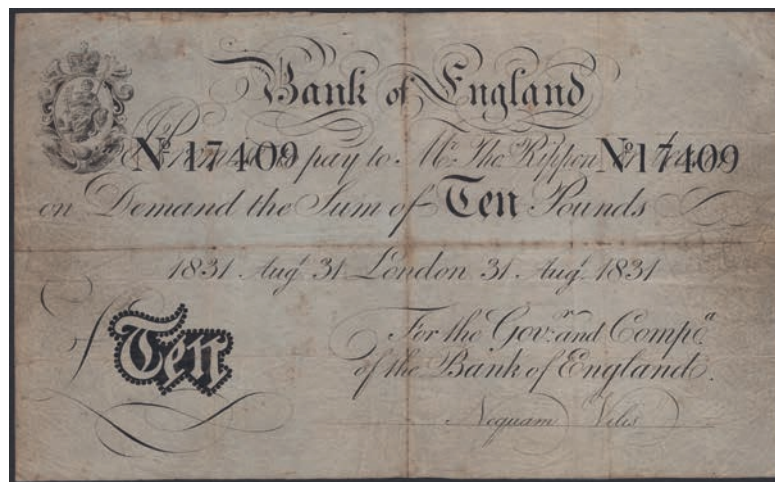 Bank of England
Nº 17409 pay to Mr. Tho Rippon Nº 17409
on Demand the Sum of Ten Pounds
1831 Augt 31 London 31 Augt 1831
£Ten
For the Govr. and Compa.
of the Bank of England.
Nequam Vilis